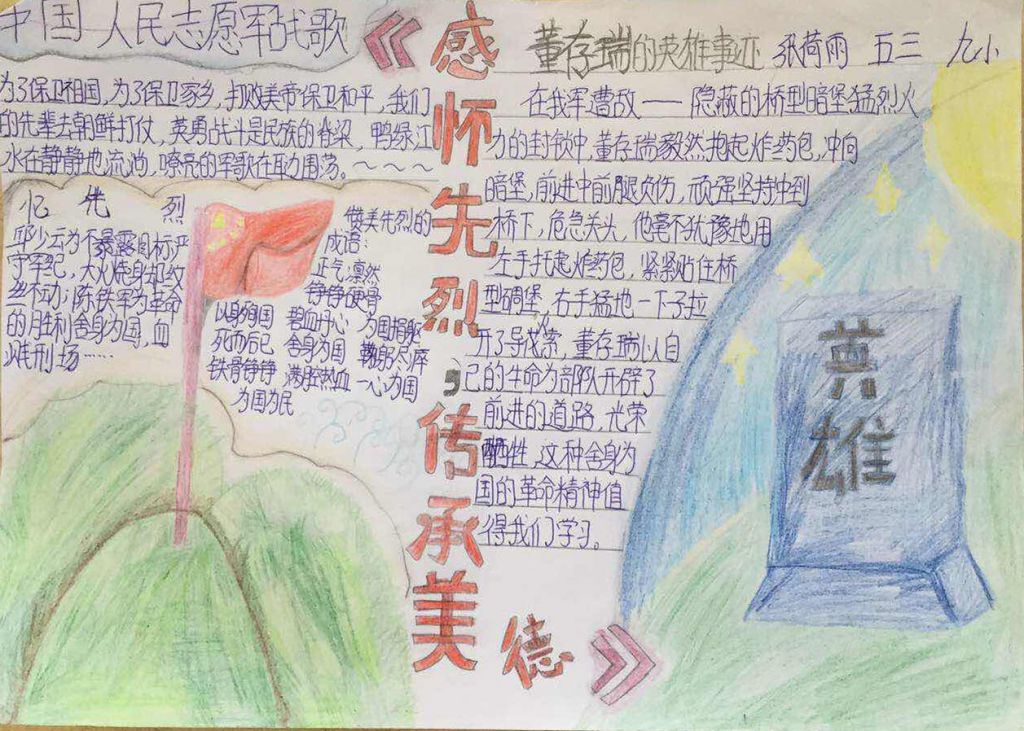 中国人民志愿军战歌
为了保卫祖国,为了保卫家乡,打败美帝保卫和平,我们
的先辈去朝鲜打仗,英勇战斗是民族的脊梁,鸭绿江
水在静静地流淌,嘹亮的军歌在耳边围荡。~~~~
忆先烈
邱少云为不暴露目标严
守军纪,大火烧身却纹
丝不动;陈铁军为革命
的胜利舍身为国,血
洒刑场……
赞美先烈的
成语:
正气凛然
铮铮硬骨
以身殉国 碧血丹心 为国捐躯
死而后已 舍身为国 鞠躬尽瘁
铁骨铮铮 满腔热血 一心为国
为国为民
《感怀先烈,传承美德》
董存瑞的英雄事迹 张荷雨 五三 九小
在我军遭敌——隐蔽的桥型暗堡猛烈火
力的封锁中,董存瑞毅然抱起炸药包,冲向
暗堡,前进中前腿负伤,顽强坚持冲到
桥下,危急关头,他毫不犹豫地用
左手托起炸药包,紧紧贴住桥
型碉堡,右手猛地一下子拉
开了导火索,董存瑞以自
己的生命为部队开辟了
前进的道路,光荣
牺牲,这种舍身为
国的革命精神值
得我们学习。
英
雄